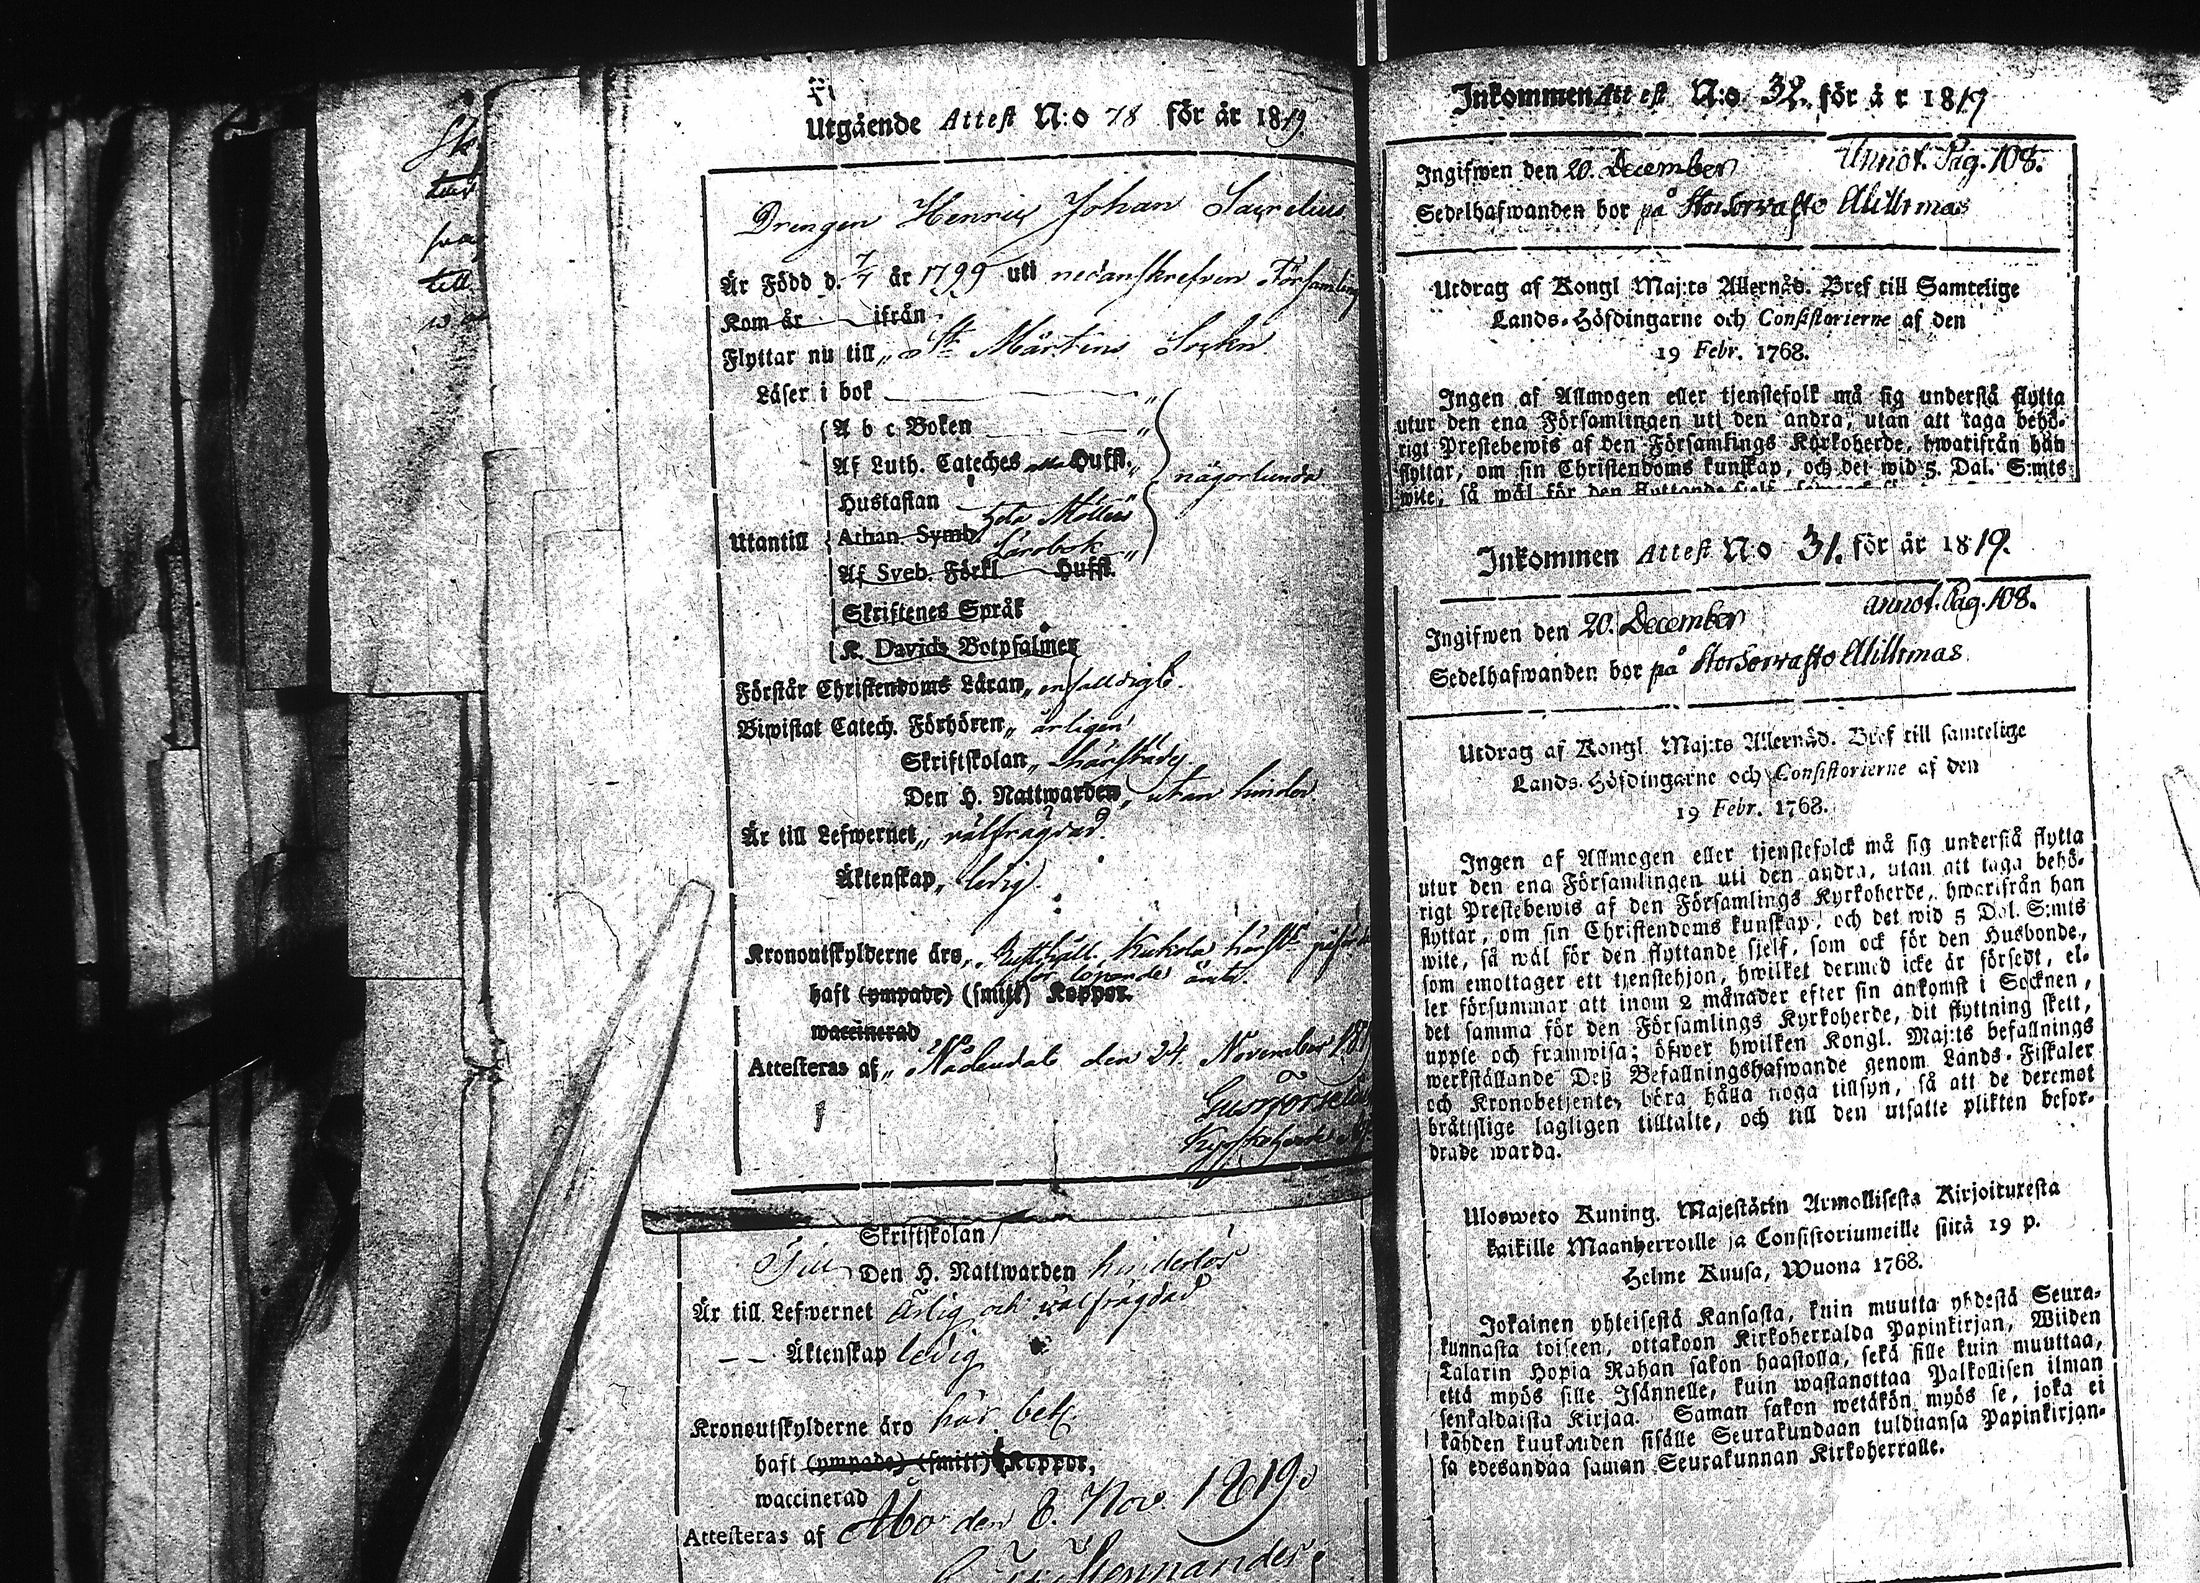 Utgående Attest N:o 78 för år 1819.
Drengen Henric Johan
Är Född d. 7/4 år 1799 uti nedanskrefven Församling
Kom år ifrån
Flyttar nu till „ St Mårtens Sockn
Läser i bok „
A b c Boken „
Af Luth. Cateches alla Hufst. „
någorlunda
Hustaflan
hela Möllers
Utantill Athan. Symb.
Lärobok „
Af Sveb. Förkl Hufst.
Skriftenes Språk
K. Davids Botpsalmer
Förstår Christendoms Läran „ enfalldigt.
Biwistat Catech. Förhören „ årligen
Skriftskolan „ härstädes
Den H. Nattwarden „ utan hinder.
Är till Lefwernet „ välfrägdad.
Äktenskap „ ledig.
Kronoutskylderne äro „ Rusthåll Kukola
för löpande året.
haft (ympade) (smitt) Koppor.
waccinerad
Attesteras af „ Nådendal den 24 November 1819
Skriftskolan
Till Den H. Nattwarden hinderlös
Är till Lefwernet Ärlig och välfrägdad
Äktenskap ledig
Kronoutskylderne äro här bet.
haft (ympade) (smitt) Koppor,
waccinerad
Attesteras af Åbo den 8. Nov. 1819.
Inkommen Attest N:o 32. för år 1819
Annot. Pag. 108.
Ingifwen den 20. December
Sedelhafwanden bor på Willimas
Utdrag af Kongl Maj:ts Allernåd. Bref till Samtelige
Lands-Höfdingarne och Consistorierne af den
19 Febr. 1768.
Ingen af Allmogen eller tjenstefolk må sig understå flytta
utur den ena Församlingen uti den andra, utan att taga behö-
rigt Prestebewis af den Församlings Kyrkoherde, hwarifrån han
flyttar, om sin Christendoms kunskap, och det wid 5. Dal. S:mts
wite, så wäl för den flyttande sjelf, som ock
Inkommen Attest N:o 31. för år 1819.
annot. Pag. 108.
Ingifwen den 20. December
Sedelhafwanden bor på Willimas
Utdrag af Kongl Maj:ts Allernåd. Bref till samtelige
Lands-Höfdingarne och Consistorierne af den
19 Febr. 1768.
Ingen af Allmogen eller tjenstefolck må sig understå flytta
utur den ena Församlingen uti den andra, utan att taga behö-
rigt Prestebewis af den Församlings Kyrkoherde, hwarifrån han
flyttar, om sin Christendoms kunskap, och det wid 5 Dal. S:mts
wite, så wäl för den flyttande sjelf, som ock för den Husbonde,
som emottager ett tjenstehjon, hwilket dermed icke är försedt, el-
ler försummar att inom 2 månader efter sin ankomst i Socknen,
det samma för den Församlings Kyrkoherde, dit flyttning skett,
uppte och framwisa; öfwer hwilken Kongl. Maj:ts befallnings
werkställande Deß Befallningshafwande genom Lands-Fiskaler
och Kronobetjente, böra hålla noga tillsyn, så att de deremot
bråttslige lagligen tilltalte, och till den utsatte plikten befor-
drade warda.
Ulosweto Kuning. Majestätin Armollisesta Kirjoituxesta
kaikille Maanherroille ja Consistoriumeille siitä 19 p.
Helme Kuusa, Wuona 1768.
Jokainen yhteisestä Kansasta, kuin muutta yhdestä Seura-
kunnasta toiseen, ottakoon Kirkoherralda Papinkirjan, Wiiden
Talarin Hopia Rahan sakon haastolla, sekä sille kuin muuttaa,
että myös sille Isännelle, kuin wastanottaa Palkollisen ilman
senkaldaista Kirjaa. Saman sakon wetäkön myös se, joka ei
kahden kuukauden sisälle Seurakundaan tulduansa Papinkirjan-
sa edesandaa saman Seurakunnan Kirkoherralle.